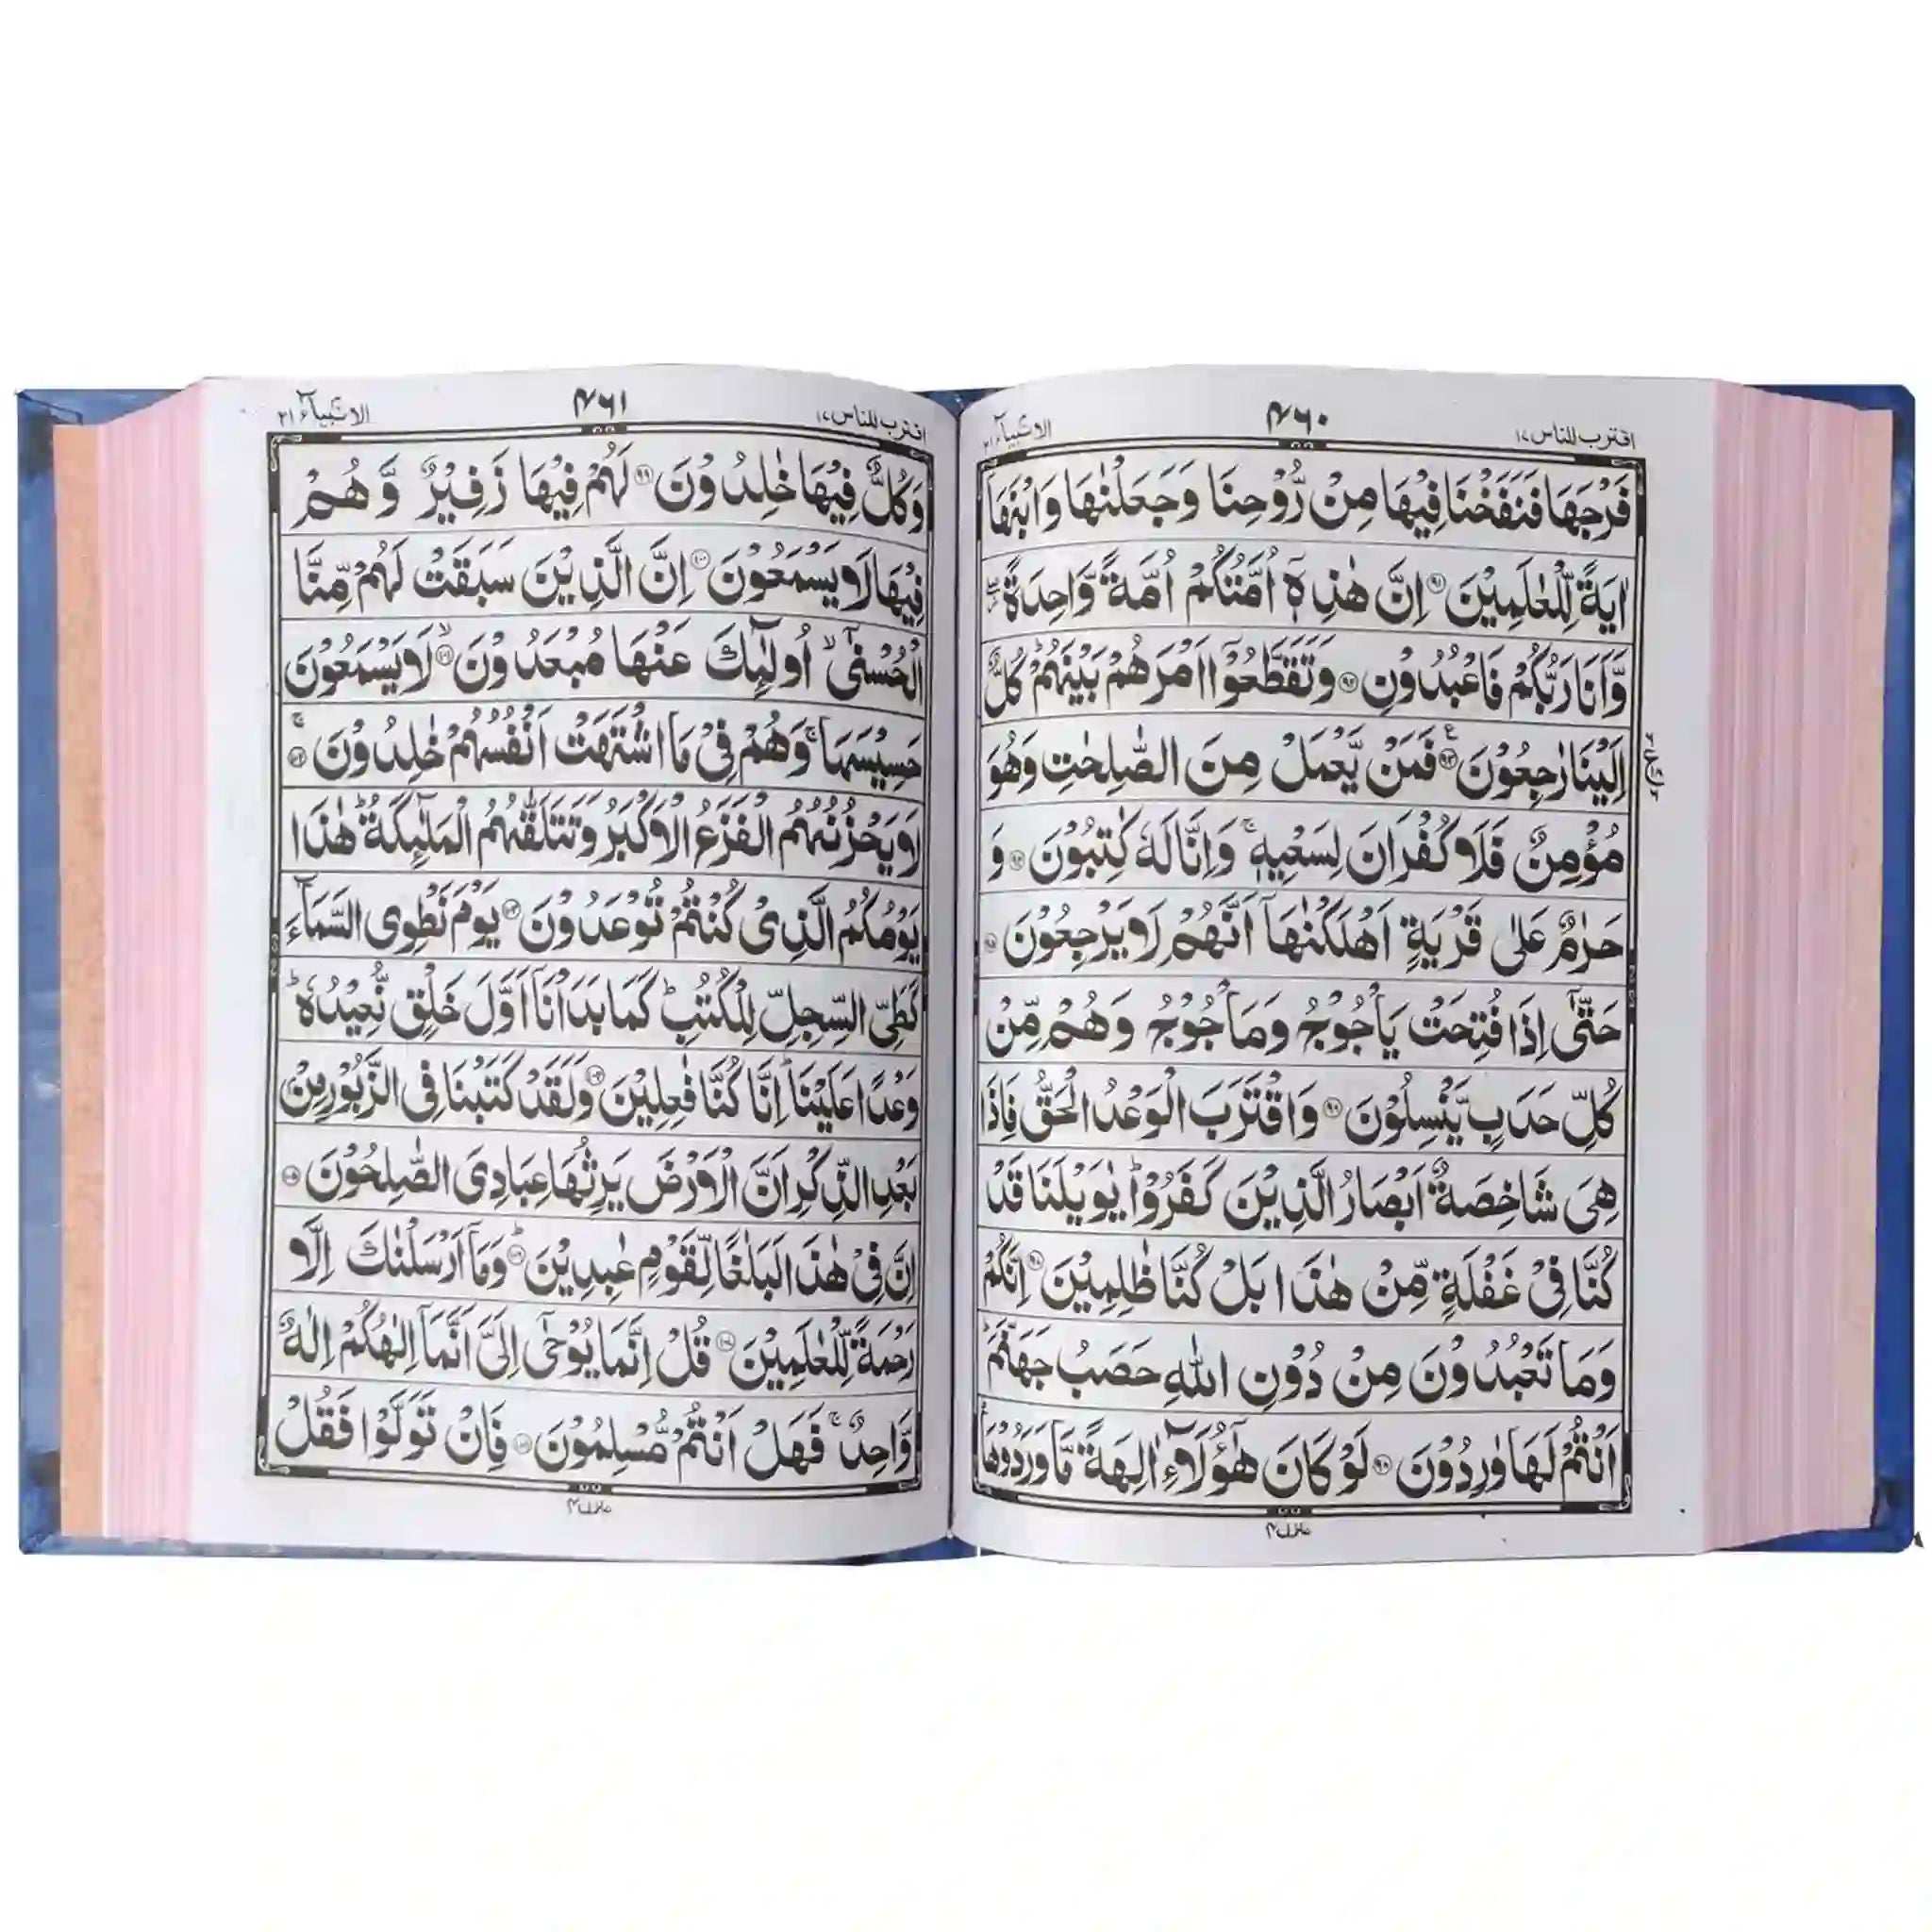 اقترب للناس ١٧
۴۶۰
الانبیآء ٢١
فَرْجَهَا فَنَفَخْنَا فِيْهَا مِنْ رُّوْحِنَا وَجَعَلْنٰهَا وَابْنَهَآ
اٰيَةً لِّلْعٰلَمِيْنَ ۝٩١ اِنَّ هٰذِهٖٓ اُمَّتُكُمْ اُمَّةً وَّاحِدَةً ۖ
وَّاَنَا رَبُّكُمْ فَاعْبُدُوْنِ ۝٩٢ وَتَقَطَّعُوْٓا اَمْرَهُمْ بَيْنَهُمْ ؕ كُلٌّ
اِلَيْنَا رٰجِعُوْنَ ۝٩٣ ع فَمَنْ يَّعْمَلْ مِنَ الصّٰلِحٰتِ وَهُوَ
مُؤْمِنٌ فَلَا كُفْرَانَ لِسَعْيِهٖ ۚ وَاِنَّا لَهٗ كٰتِبُوْنَ ۝٩٤ وَ
حَرٰمٌ عَلٰى قَرْيَةٍ اَهْلَكْنٰهَآ اَنَّهُمْ لَا يَرْجِعُوْنَ ۝٩٥
حَتّٰٓى اِذَا فُتِحَتْ يَاْجُوْجُ وَمَاْجُوْجُ وَهُمْ مِّنْ
كُلِّ حَدَبٍ يَّنْسِلُوْنَ ۝٩٦ وَاقْتَرَبَ الْوَعْدُ الْحَقُّ فَاِذَا
هِيَ شَاخِصَةٌ اَبْصَارُ الَّذِيْنَ كَفَرُوْا ؕ يٰوَيْلَنَا قَدْ
كُنَّا فِيْ غَفْلَةٍ مِّنْ هٰذَا بَلْ كُنَّا ظٰلِمِيْنَ ۝٩٧ اِنَّكُمْ
وَمَا تَعْبُدُوْنَ مِنْ دُوْنِ اللّٰهِ حَصَبُ جَهَنَّمَ ؕ
اَنْتُمْ لَهَا وٰرِدُوْنَ ۝٩٨ لَوْ كَانَ هٰٓؤُلَآءِ اٰلِهَةً مَّا وَرَدُوْهَا ؕ
منزل ۴
اقترب للناس ١٧
۴۶۱
الانبیآء ٢١
وَكُلٌّ فِيْهَا خٰلِدُوْنَ ۝٩٩ لَهُمْ فِيْهَا زَفِيْرٌ وَّهُمْ
فِيْهَا لَا يَسْمَعُوْنَ ۝١٠٠ اِنَّ الَّذِيْنَ سَبَقَتْ لَهُمْ مِّنَّا
الْحُسْنٰٓى ۙ اُولٰٓئِكَ عَنْهَا مُبْعَدُوْنَ ۝١٠١ ۙ لَا يَسْمَعُوْنَ
حَسِيْسَهَا ۚ وَهُمْ فِيْ مَا اشْتَهَتْ اَنْفُسُهُمْ خٰلِدُوْنَ ۝١٠٢ ۚ
لَا يَحْزُنُهُمُ الْفَزَعُ الْاَكْبَرُ وَتَتَلَقّٰىهُمُ الْمَلٰٓئِكَةُ ؕ هٰذَا
يَوْمُكُمُ الَّذِيْ كُنْتُمْ تُوْعَدُوْنَ ۝١٠٣ يَوْمَ نَطْوِى السَّمَآءَ
كَطَيِّ السِّجِلِّ لِلْكُتُبِ ؕ كَمَا بَدَاْنَآ اَوَّلَ خَلْقٍ نُّعِيْدُهٗ ؕ
وَعْدًا عَلَيْنَا ؕ اِنَّا كُنَّا فٰعِلِيْنَ ۝١٠٤ وَلَقَدْ كَتَبْنَا فِى الزَّبُوْرِ مِنْ
بَعْدِ الذِّكْرِ اَنَّ الْاَرْضَ يَرِثُهَا عِبَادِيَ الصّٰلِحُوْنَ ۝١٠٥
اِنَّ فِيْ هٰذَا لَبَلٰغًا لِّقَوْمٍ عٰبِدِيْنَ ۝١٠٦ ؕ وَمَآ اَرْسَلْنٰكَ اِلَّا
رَحْمَةً لِّلْعٰلَمِيْنَ ۝١٠٧ قُلْ اِنَّمَا يُوْحٰٓى اِلَيَّ اَنَّمَآ اِلٰهُكُمْ اِلٰهٌ
وَّاحِدٌ ۚ فَهَلْ اَنْتُمْ مُّسْلِمُوْنَ ۝١٠٨ فَاِنْ تَوَلَّوْا فَقُلْ
منزل ۴